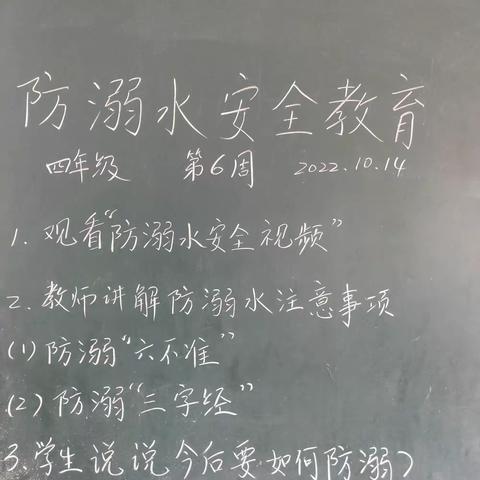 防溺水安全教育
四年级 第6周 2022.10.14
1. 观看“防溺水安全视频”
2. 教师讲解防溺水注意事项
(1)防溺“六不准”
(2)防溺“三字经”
3.学生说说今后要如何防溺)